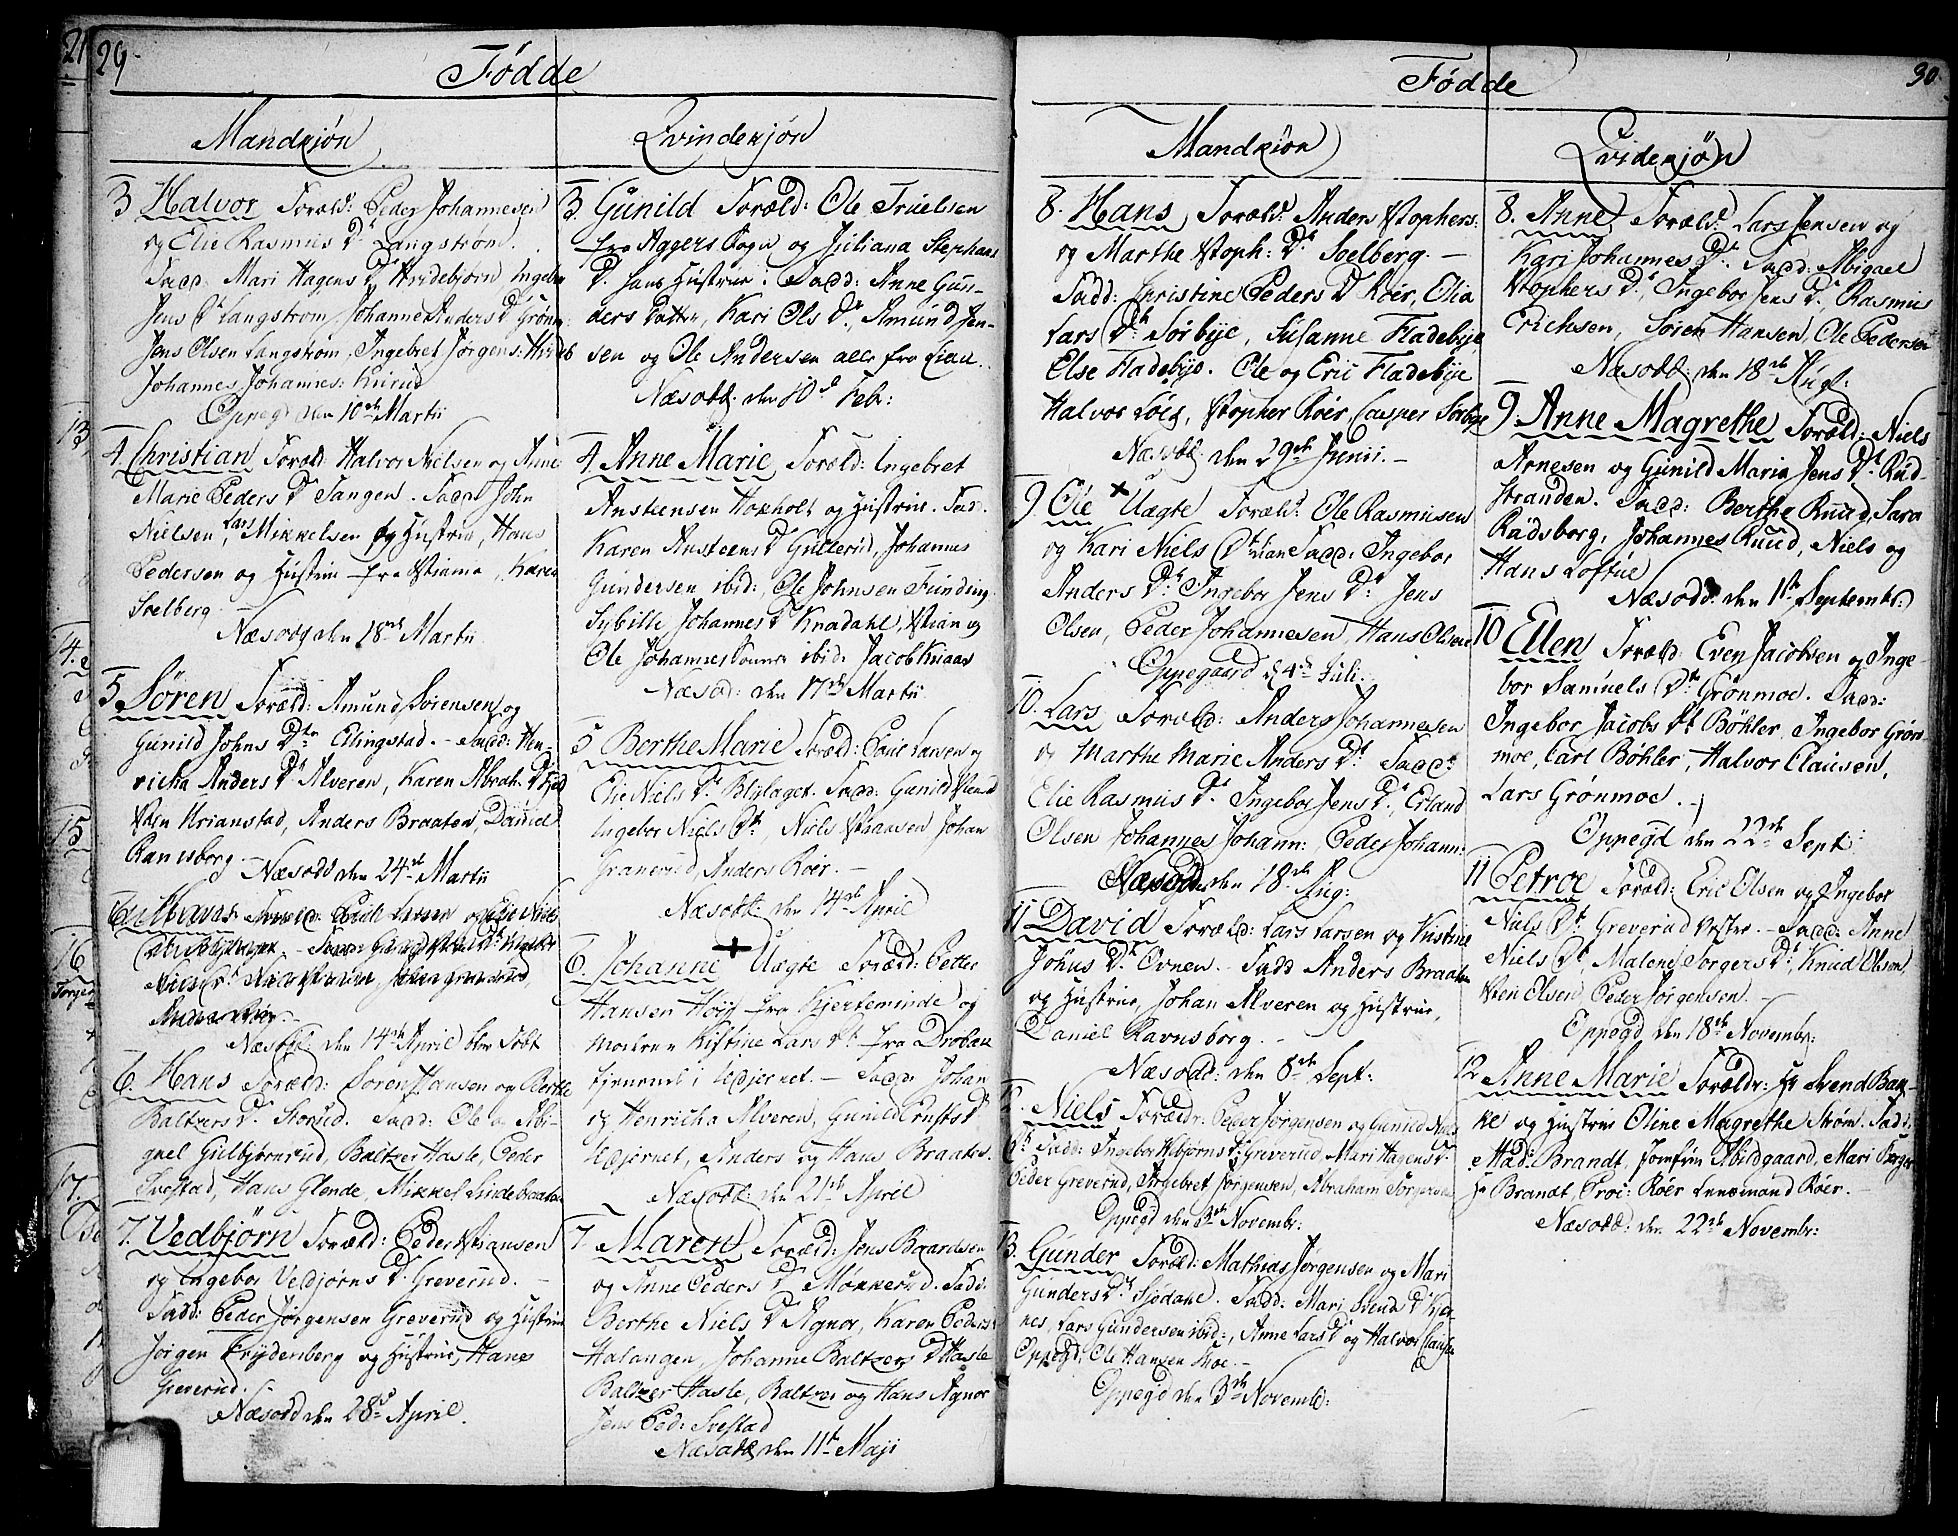 29
Fødde
Mandkjøn
3 Halvor Foræld: Peder Johannesen
og Elie Rasmus Dr Langstrøm.
Fadd. Mari Hagens Dr Hvidebjørn Ingebor
Jens Dr Langstrøm, Johanne Anders Dr Grønm
Jens Olsen Langstrøm, Ingebret Jørgens:
Johannes Johannes:
Oppegd den 10de Martii
4 Christian Foræld: Halvor Nielsen og Anne
Marie Peders Dr Tangen. Fadd: John
Nielsen, Lars Mikkelsen og Hustrue, Hans
Pedersen og Hustrue fra, Karen
Soelberg
Næsodd den 18de Martii
5 Søren Foræld: Amund Sørensen og
Gunild Johns Dtr Ellingstad. - Fadd: Hen-
richa Anders Dr Alveren, Karen Abrah: Dr
Sten Krianstad, Anders Braaten, Daniel
Ravnsborg
Næsodd den 24de Martii
Næsodd: den 14de April blev Døbt
6. Hans Foræld: Søren Hansen og Berthe
Baltzers Dr Storud. Fadd: Ole og Abi-
gael Gulbjørnrud, Baltzer Hasle, Peder
Svestad, Hans Glende, Mikkel Lindebraaten
7. Vedbjørn Foræld: Peder Hansen
og Ingebor Vedjørns Dr Greverud.
Fadd: Peder Jørgensen Greverud og Hustrue
Jørgen Frydenberg og Hustrue, Hans
Greverud.
Næsodd den 28de April.
Qvindekjøn
3. Gunild Foræld: Ole Truelsen
fra Aggers Sogn og Juliana Stephans
Dr hans Hustrue: Fadd: Anne Gun-
ders Datter, Kari Ols Dr, Amund Jen-
sen og Ole Andersen alle fra Lian.
Næsodd: den 10de Febr:
4 Anne Marie Foræld: Ingebret
Anstensen Hoxholt og Hustrue. Fad.
Karen Ansteens Dr Gulterud, Johannes
Gundersen ibid:, Ole Johnsen Funding
Sybille Johannes Dr Kradahl, Stian og
Ole Johannes Sønner ibid: Jacob Knaas
Næsod: den 17de Martii
5 Berthe Marie Foræld: Poul Larsen og
Elie Niels Dr Blylaget. Fadd: Gunild
Ingebor Niels Dr, Niels Johan
Granerud, Anders Roer.
Næsodd: den 14de April
6. Johanne + Uægte Foræld: Petter
Hansen Høy fra Kjerteminde og
Moderen Kistine Lars Dr fra Drøbak
tjenende i Udjernet. - Fadd: Johan
og Henricha Alveren, Gunild Knuts Dr
Udjernet, Anders og Hans Braaten.
Næsodd: den 21de April
7 Maren Foræld: Jens Baardsen
og Anne Peders Dr Møkkerud. Fadd:
Berthe Niels Dr Agnor, Karen Peders
Halangen, Johanne Baltzers Dr Hasle
Baltzer Hasle, Baltzer og Hans Agnor
Jens Ped: Svestad
Næsodd den 11te Maji
30
Fødde
Mandkiøn
8. Hans Foræld: Anders Stophers:
og Marthe Stoph: Dr Soelberg. -
Fadd: Christine Peders Dr Roer, Elia
Lars Dr Sørbye, Susanne Fladebye
Else Fladebye. Ole og Eric Fladebye
Halvor Løes, Stopher Roer, Casper Sørbye
Næsodd: den 29de Junii. -
9 Ole + Uægte Foræld: Ole Rasmusen
og Kari Niels Dr Lian Fadd: Ingebor
Anders Dr Ingebor Jens Dr Jens
Olsen, Peder Johannesen, Hans Olsen
Oppegaard d 4de Juli.
10. Lars Foræld: Anders Johannesen
og Marthe Marie Anders Dr Fadd:
Elie Rasmus Dr Ingebor Jens Dr, Erland
Olsen Johannes Johann: Peder Johann:
Næsodd den 18de Aug:
11 David Foræld: Lars Larsen og Kistine
Johns Dr Ovnen. Fadd Anders Braaten
og Hustrue, Johan Alveren og Hustrue,
Daniel Ravnsborg. -
Næsodd: den 8de Sept:
12. Niels Foræld: Peder Jørgensen og Gunild Niels
Dr. Fadd: Ingebor Vedbjørns Dr Greverud, Mari Hagens Dr
Peder Greverud, Ingebret Jørgensen, Abraham Torgersen
Oppegd den 3de Novembr:
13. Gunder Foræld: Mathias Jørgensen og Mari
Gunders Dr Sjødahl. Fadd: Mari Svends Dr Kjer-
nes, Lars Gundersen ibid:, Anne Lars Dr og Halvor Clausen
Oppegd: Ole Hansen Moe. -
Oppegd den 3de Novembr:
Qvidekjøn
8. Anne Foræld: Lars Jensen og
Kari Johannes Dr. Fadd: Abigael
Stophers Dr, Ingebor Jens Dr, Rasmus
Erichsen, Søren Hansen, Ole Pedersen
Næsodd: den 18de Augt:
9. Anne Magrethe Foræld: Niels
Arnesen og Gunild Maria Jens Dr Rud-
stranden. Fadd: Berthe Ruud, Sara
Radsborg, Johannes Ruud, Niels og
Hans Loftue
Næsodd: den 1ste Septembr:
10 Ellen Foræld: Even Jacobsen og Inge-
bor Samuels Dr Grønmoe. Fadd:
Ingebor Jacobs Dr Bøhler, Ingebor Grøn-
moe, Carl Bøhler, Halvor Clausen,
Lars Grønmoe. -
Oppegd den 22de Sept:
11 Petroe Foræld: Eric Olsen og Ingebor
Niels Dr Greverud Vestre. - Fadd: Anne
Niels Dr, Malene Torgers Dr, Knud Olsen,
Sten Olsen Peder Jørgensen. -
Oppegd den 18de Novembr:
12 Anne Marie Forældr: Hr Svend Bak-
ke og Hustrue Oline Magrethe Strøm. Fadd:
Mad: Brandt, Jomfrue Abildgaard, Mari Berger
Hr Brandt, Proc: Røer Lensmand Røer.
Næsodd: den 22de Novembr: